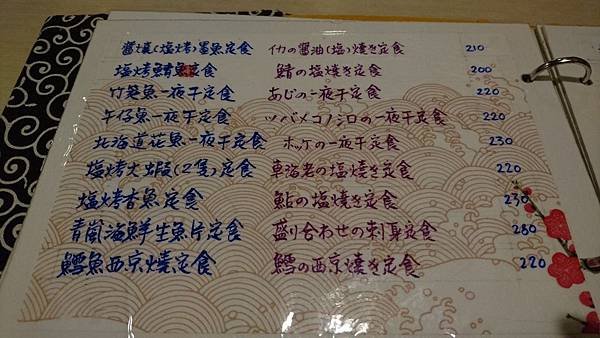 醬燒(塩烤)墨魚定食 イカの醤油(塩)焼き定食 210
塩烤鯖魚定食 鯖の塩焼き定食 200
竹筴魚一夜干定食 あじの一夜干定食 220
午仔魚一夜干定食 ツバメコノシロの一夜干定食 220
北海道花魚一夜干定食 ホッケの一夜干定食 230
塩烤大出蝦(2隻)定食 車海老の塩焼き定食 220
塩烤香魚定食 鮎の塩焼き定食 230
青嵐海鮮生魚片定食 盛り合わせの刺身定食 280
鱈魚西京燒定食 鱈の西京焼き定食 220